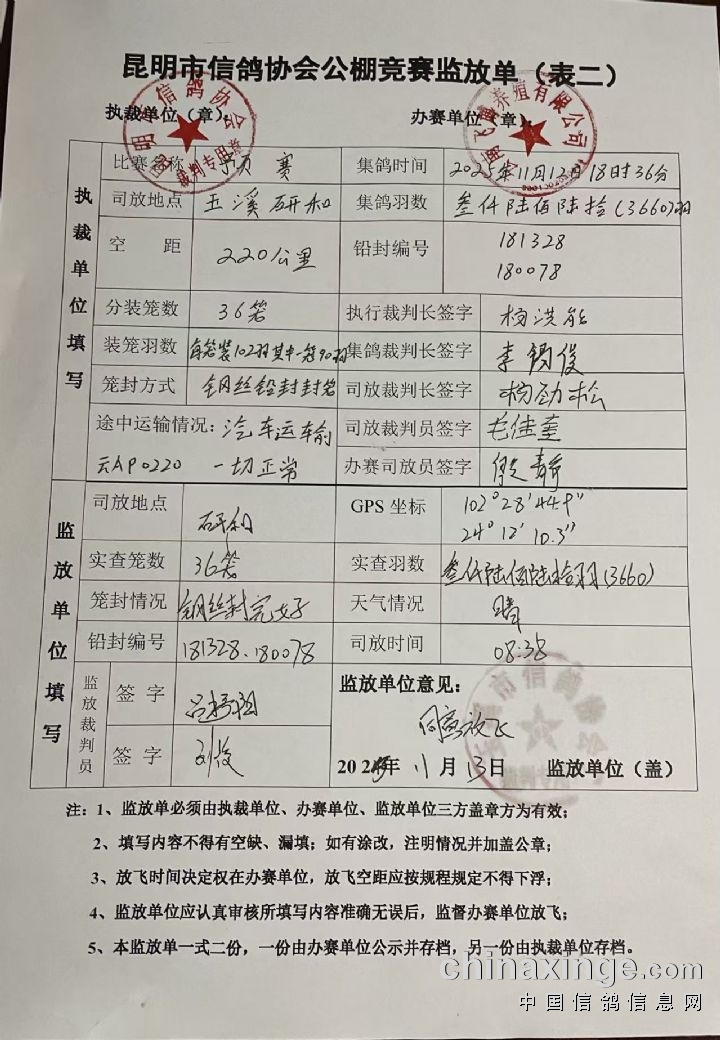 昆明市信鸽协会公棚竞赛监放单（表二）
执裁单位（章）： 办赛单位（章）：
执裁单位填写
比赛名称 预赛 集鸽时间 2025年11月12日18时36分
司放地点 玉溪研和 集鸽羽数 叁仟陆佰陆拾(3660)羽
空距 220公里 铅封编号 181328
180078
分装笼数 36笼 执行裁判长签字 杨洪能
装笼羽数 每笼装102羽其中一笼90羽 集鸽裁判长签字 李锡俊
笼封方式 钢丝铅封封笼 司放裁判长签字 杨劲松
途中运输情况：汽车运输 司放裁判员签字 毛佳
云AP0220 一切正常 办赛司放员签字 静
监放单位填写
司放地点 研和 GPS 坐标 102°28′44.9″
24°12′10.3″
实查笼数 36笼 实查羽数 叁仟陆佰陆拾羽(3660)
笼封情况 钢丝封完好 天气情况 晴
铅封编号 181328.180078 司放时间 08:38
监放裁判员
签字 监放单位意见：
同意放飞
签字 刘俊
2025年11月13日 监放单位（盖）
注：1、监放单必须由执裁单位、办赛单位、监放单位三方盖章方为有效；
2、填写内容不得有空缺、漏填；如有涂改，注明情况并加盖公章；
3、放飞时间决定权在办赛单位，放飞空距应按规程规定不得下浮；
4、监放单位应认真审核所填写内容准确无误后，监督办赛单位放飞；
5、本监放单一式二份，一份由办赛单位公示并存档，另一份由执裁单位存档。
chinaxinge.com
中国信鸽信息网